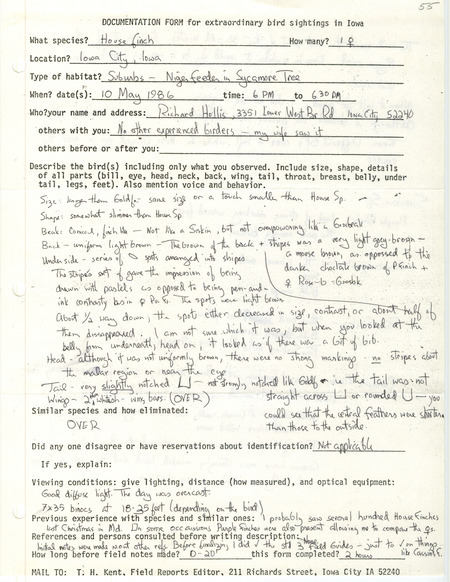 55
DOCUMENTATION FORM for extraordinary bird sightings in Iowa
What species? House finch How many? 1 ♀
Location? Iowa City, Iowa
Type of habitat? Suburbs - Niger feeder in Sycamore Tree
When? date(s): 10 May 1986 time: 6 PM to 6:30 PM
Who?your name and address: Richard Hollis, 3351 Lower West Br Rd Iowa City 52240
others with you: No other experienced birders - my wife saw it
others before or after you:
Describe the bird(s) including only what you observed. Include size, shape, details
of all parts (bill, eye, head, neck, back, wing, tail, throat, breast, belly, under
tail, legs, feet). Also mention voice and behavior.
Size: larger than Goldf - same size or a touch smaller than House Sp.
Shape: somewhat slimmer than House Sp
Beak: Conical, finch like - Not like a Siskin, but not overpowering like a Grosbeak
Back - uniform light brown - The brown of the back + stripes was a very light grey-brown -
Underside - series of spots arranged into stripes a mouse brown, as opposed to the
The stripes sort of gave the impression of being darker choclate brown of P Finch +
drawn with pastels as opposed to being pen-and- ♀ Rose-b-Grosbk
ink contrasty as in ♀ Pu Fi. The spots were light brown.
About 1/2 way down, the spots either decreased in size, contrast, or about half of
them dissappeared. I am not sure which it was, but when you looked at the
belly from underneath, head on, it looked as if there was a bit of bib.
Head - although it was not uniformly brown, there were no strong markings - no stripes about
the malar region or near the eye
Tail - very slightly notched - not strongly notched like Goldf - ie the tail was not
straight across or rounded - you
Wings - 2 whitish - wing bars (OVER) could see that the central feathers were shorter
Similar species and how eliminated: than those to the outside.
OVER
Did any one disagree or have reservations about identification? Not applicable
If yes, explain:
Viewing conditions: give lighting, distance (how measured), and optical equipment:
Good diffuse light. The day was overcast.
7x35 binocs at 18-25 feet (depending on the bird)
Previous experience with species and similar ones: I probably saw several hundred House Finches
last Christmas in Md. On some occassions Purple Finches were also present allowing me to compare the ♀s.
References and persons consulted before writing description: None
Initial notes were made w/out other refs. Before finalizing, I did ✓ the std 3 Field Guides - just to ✓ on things
How long before field notes made? 0-20" this form completed? 2 hours like
MAIL TO: T. H. Kent, Field Reports Editor, 211 Richards Street, Iowa City IA 52240